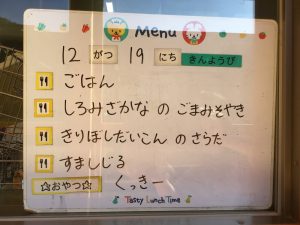 Menu
12 がつ 19 にち きんようび
ごはん
しろみざかな の ごまみそやき
きりぼしだいこん の さらだ
すましじる
☆おやつ☆ くっきー
Tasty Lunch Time